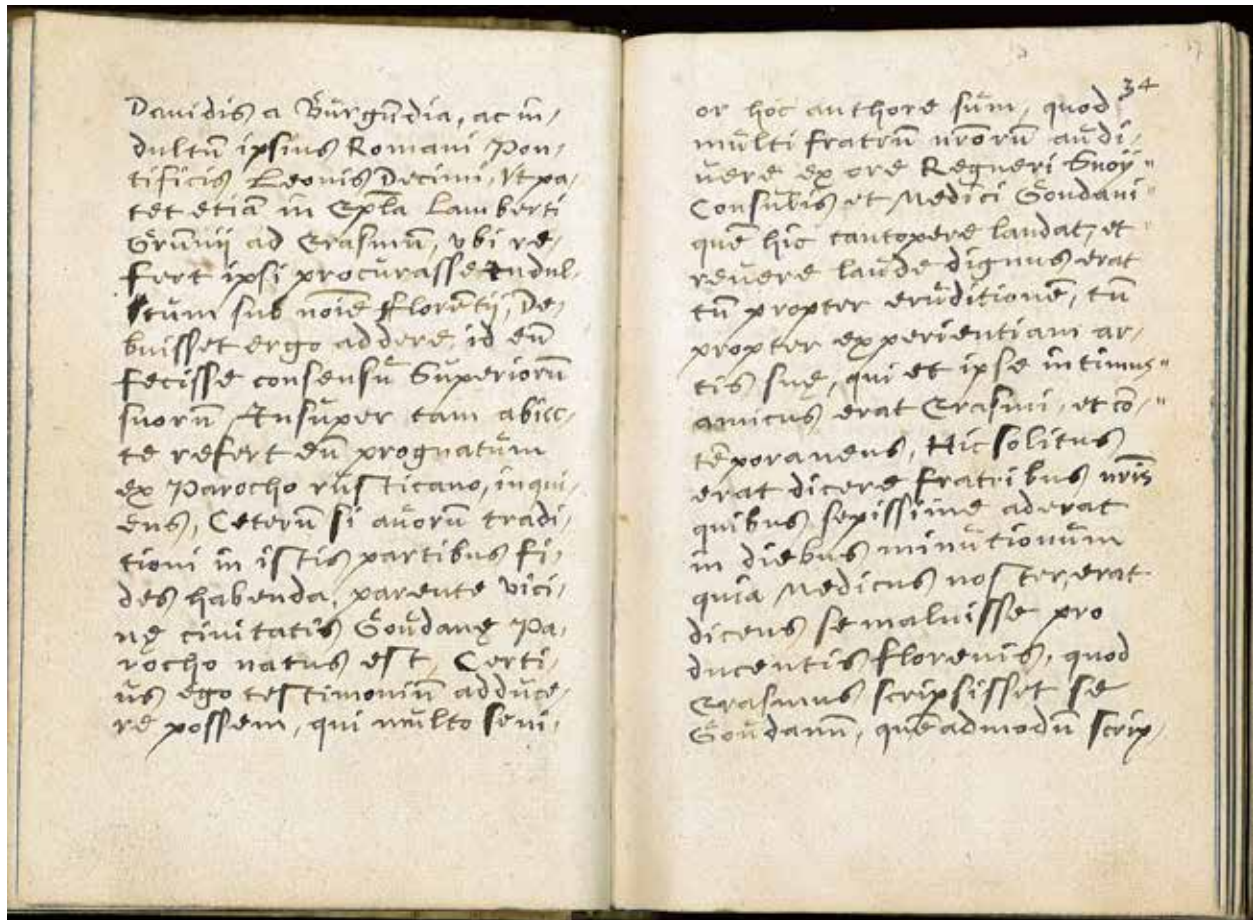 Dauidis a Burgundia, ac in,
dultū ipsius Romani Pon,
tificis Leonis Decimi, Vt pa,
tet etiā in Epl̄a Lamberti
Grunnij ad Erasmū, vbi re,
fert ipsi procurasse Indul,
tum sub noīe Florētij, De,
buisset ergo addere, id eū
fecisse consensu Superiorū
suorū Insuper tam abiec,
te refert eū prognatum
ex Parocho rusticano, inqui,
ens, Ceterū si auorū tradi,
tioni in istis partibus fi,
des habenda, parente vici,
nę ciuitatis Goudanę Pa,
rocho natus est, Certi,
us ego testimoniū adduce,
re possem, qui multo seni,
34
or hoc authore sum, quod
multi fratrū nr̄orū audi,
uere ex ore Regneri Snoy"
Consulis et Medici Goudani"
quē hic tantopere laudat, et "
reuere laude dignus erat
tū propter eruditionē, tū
propter experientiam ar,
tis suę, qui et ipse intimus"
amicus erat Erasmi, et cō,"
tēporaneus, Hic solitus
erat dicere fratribus nr̄is
quibus sepissime aderat
in diebus minutionum
quia Medicus noster, erat
dicens se maluisse pro
ducentis florenis, quod
Erasmus scripsisset se
Goudanū, quēadmodū scrip,